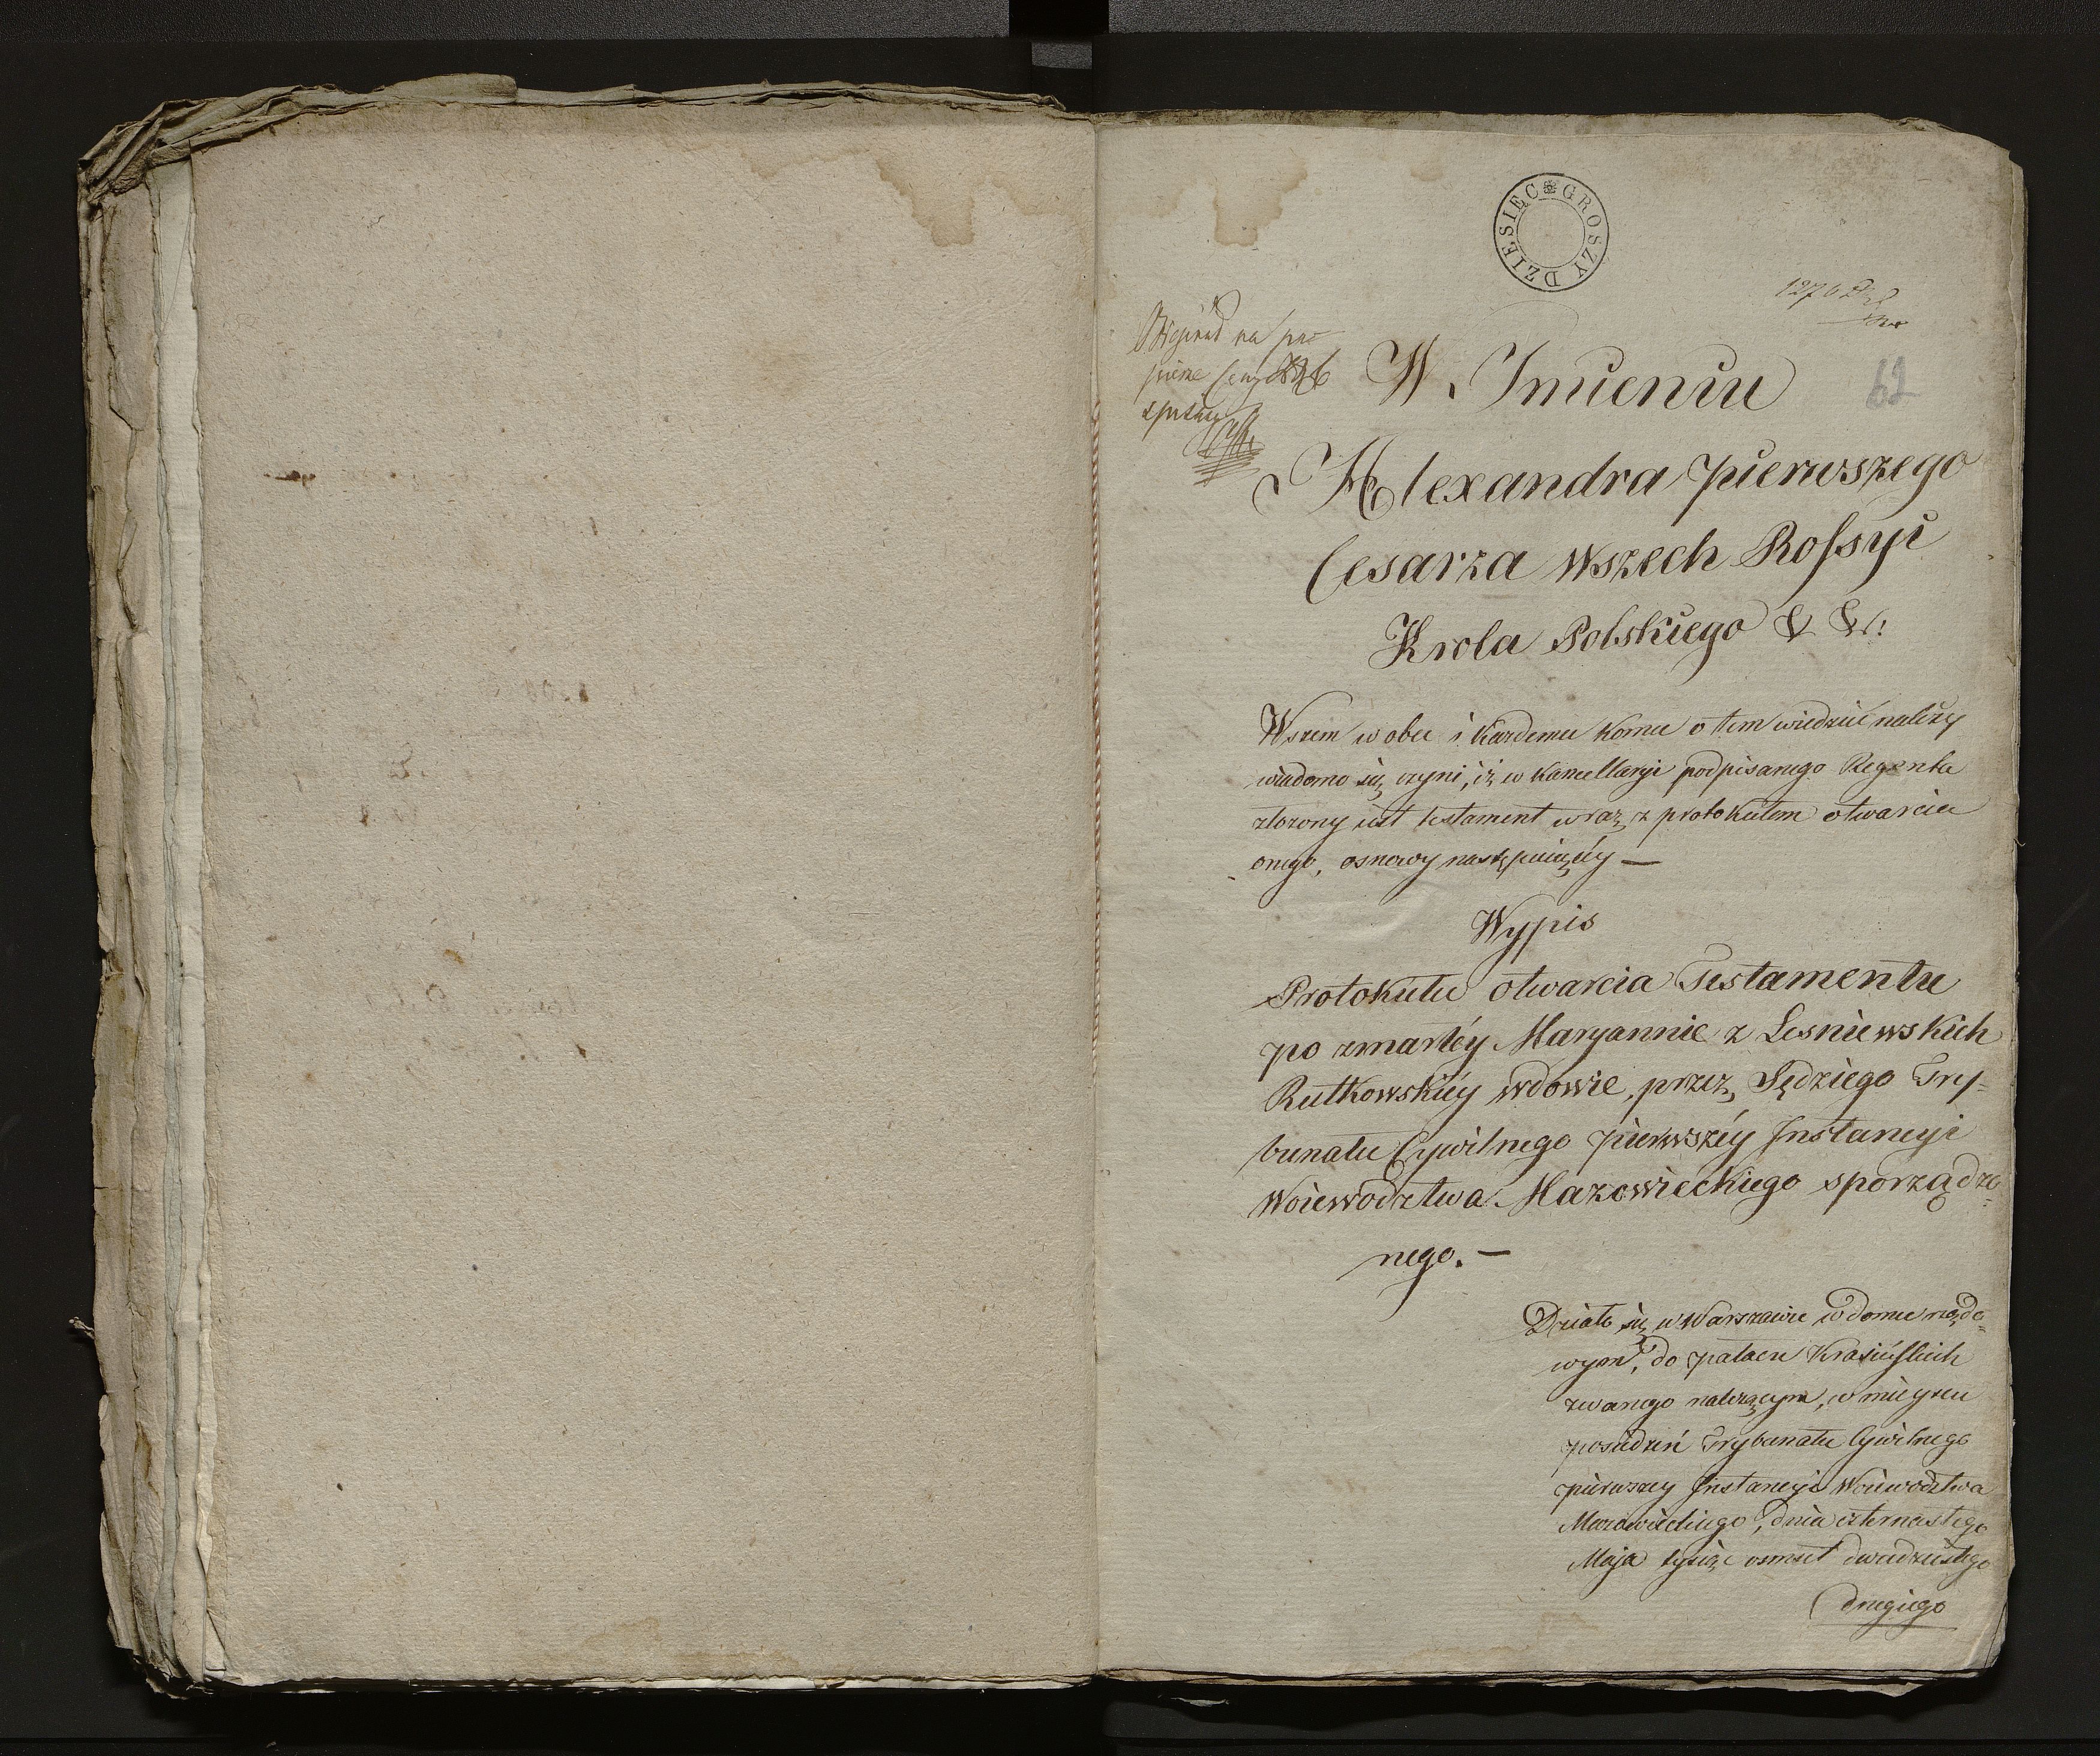 DZIESIĘC GROSZY
62
W Imieniu
Alexandra pierwszego
Cesarza Wszech Rossyi
Krola Polskiego & &:
Wszem w obec i każdemu komu o tem wiedzieć należy
wiadomo się czyni, iż w Kancellaryi podpisanego Regenta
złożony iest testament wraz z protokułem otwarcia
onego, osnowy następuiącéy —
Wypis
Protokułu otwarcia Testamentu
po zmarłéy Maryannie z Lesniewskich
Rutkowskiéy wdowie, przez Sędziego Try-
bunału Cywilnego pierwszéy Instancyi
Woiewodztwa Mazowieckiego sporządzo-
nego. —
Działo się w Warszawie w domu rządo-
wym, do pałacu Krasińskich
zwanego należącym, w mieyscu
posiedzeń Trybunału Cywilnego
pierwszey Instancyi Woiewodztwa
Mazowieckiego, dnia czternastego
Maja tysiąc osmset dwudziestego
drugiego